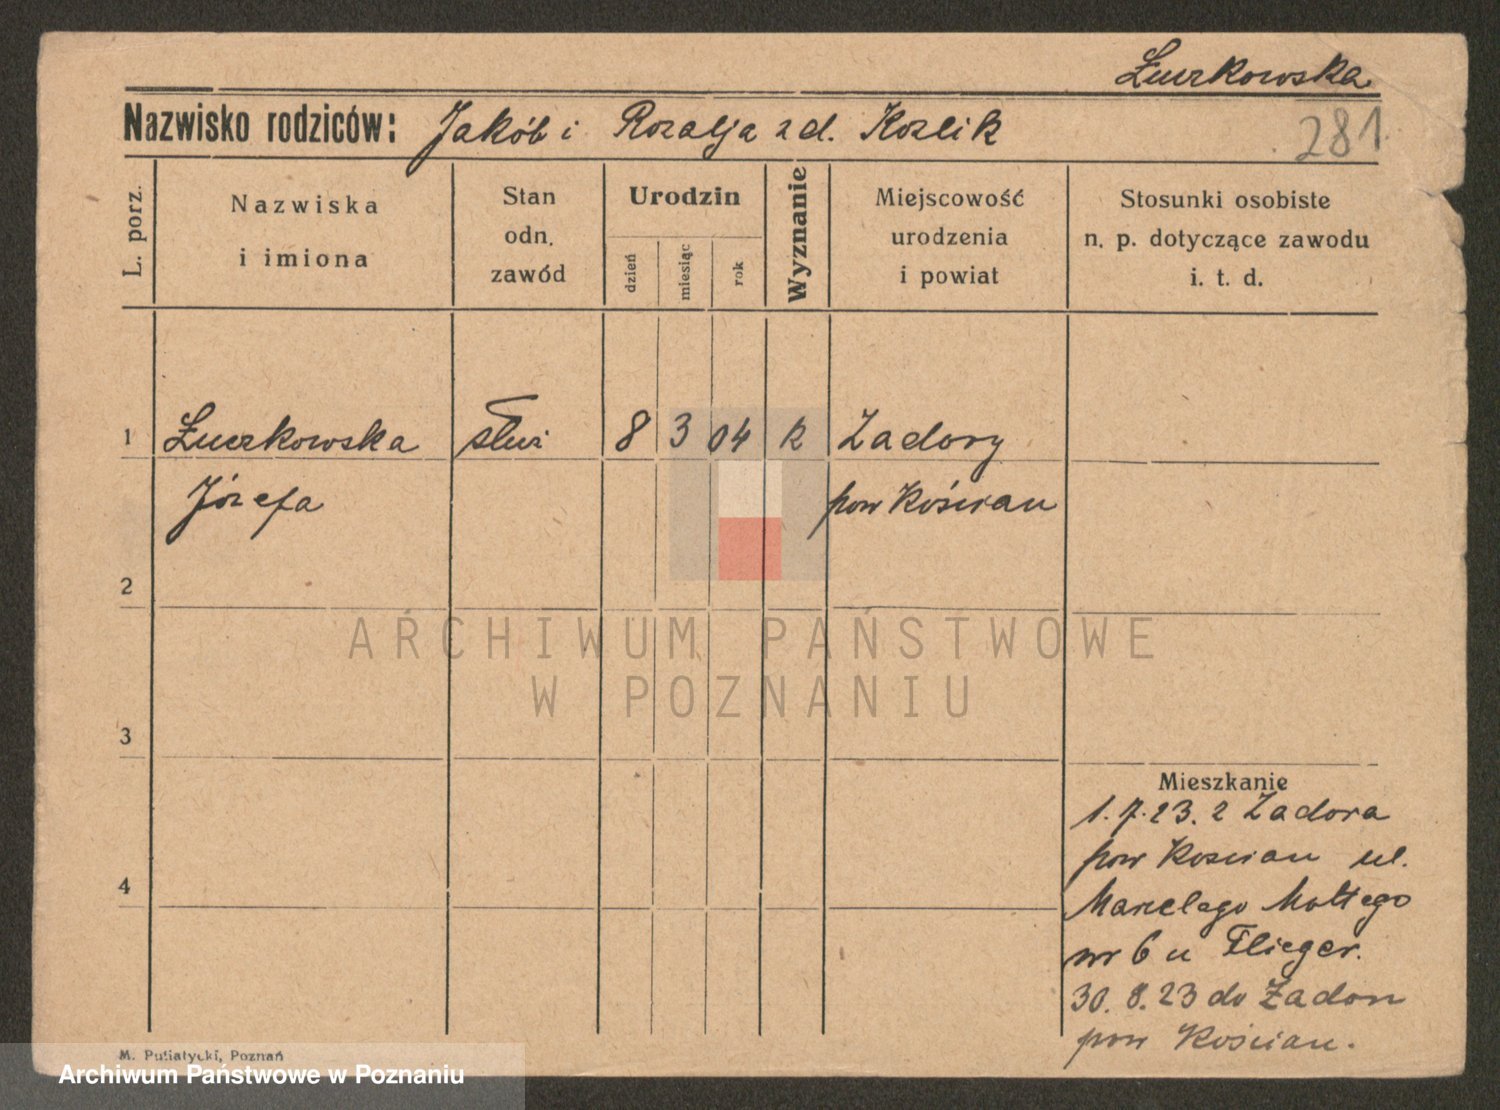 Żuczkowska
Nazwisko rodziców: Jakób i Rozalja z d. Kozlik
281
L. porz.
Nazwiska
i imiona
Stan
odn.
zawód
Urodzin
dzień
miesiąc
rok
Wyznanie
Miejscowość
urodzenia
i powiat
Stosunki osobiste
n. p. dotyczące zawodu
i. t. d.
1 Żuczkowska służ 8 3 04 k Zadory
Józefa pow Kościan
2
ARCHIWUM PAŃSTWOWE
W POZNANIU
3
Mieszkanie
1.7.23. z Zadora
pow Koscian ul.
4
Marcelego Mottego
nr 6 u Flieger.
30.8.23 do Zadory
pow Kościan.
M. Putiatycki, Poznań
Archiwum Państwowe w Poznaniu